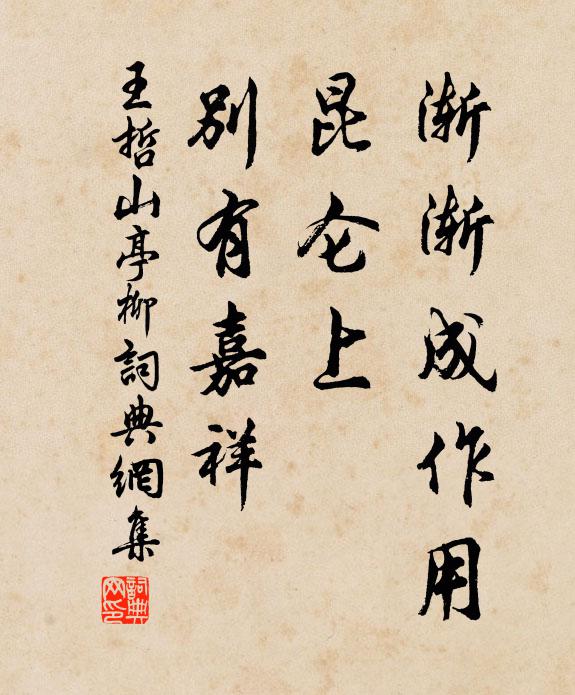 渐渐成作用
昆仑上
别有嘉祥
王哲山亭柳詞典網集
詞典网印